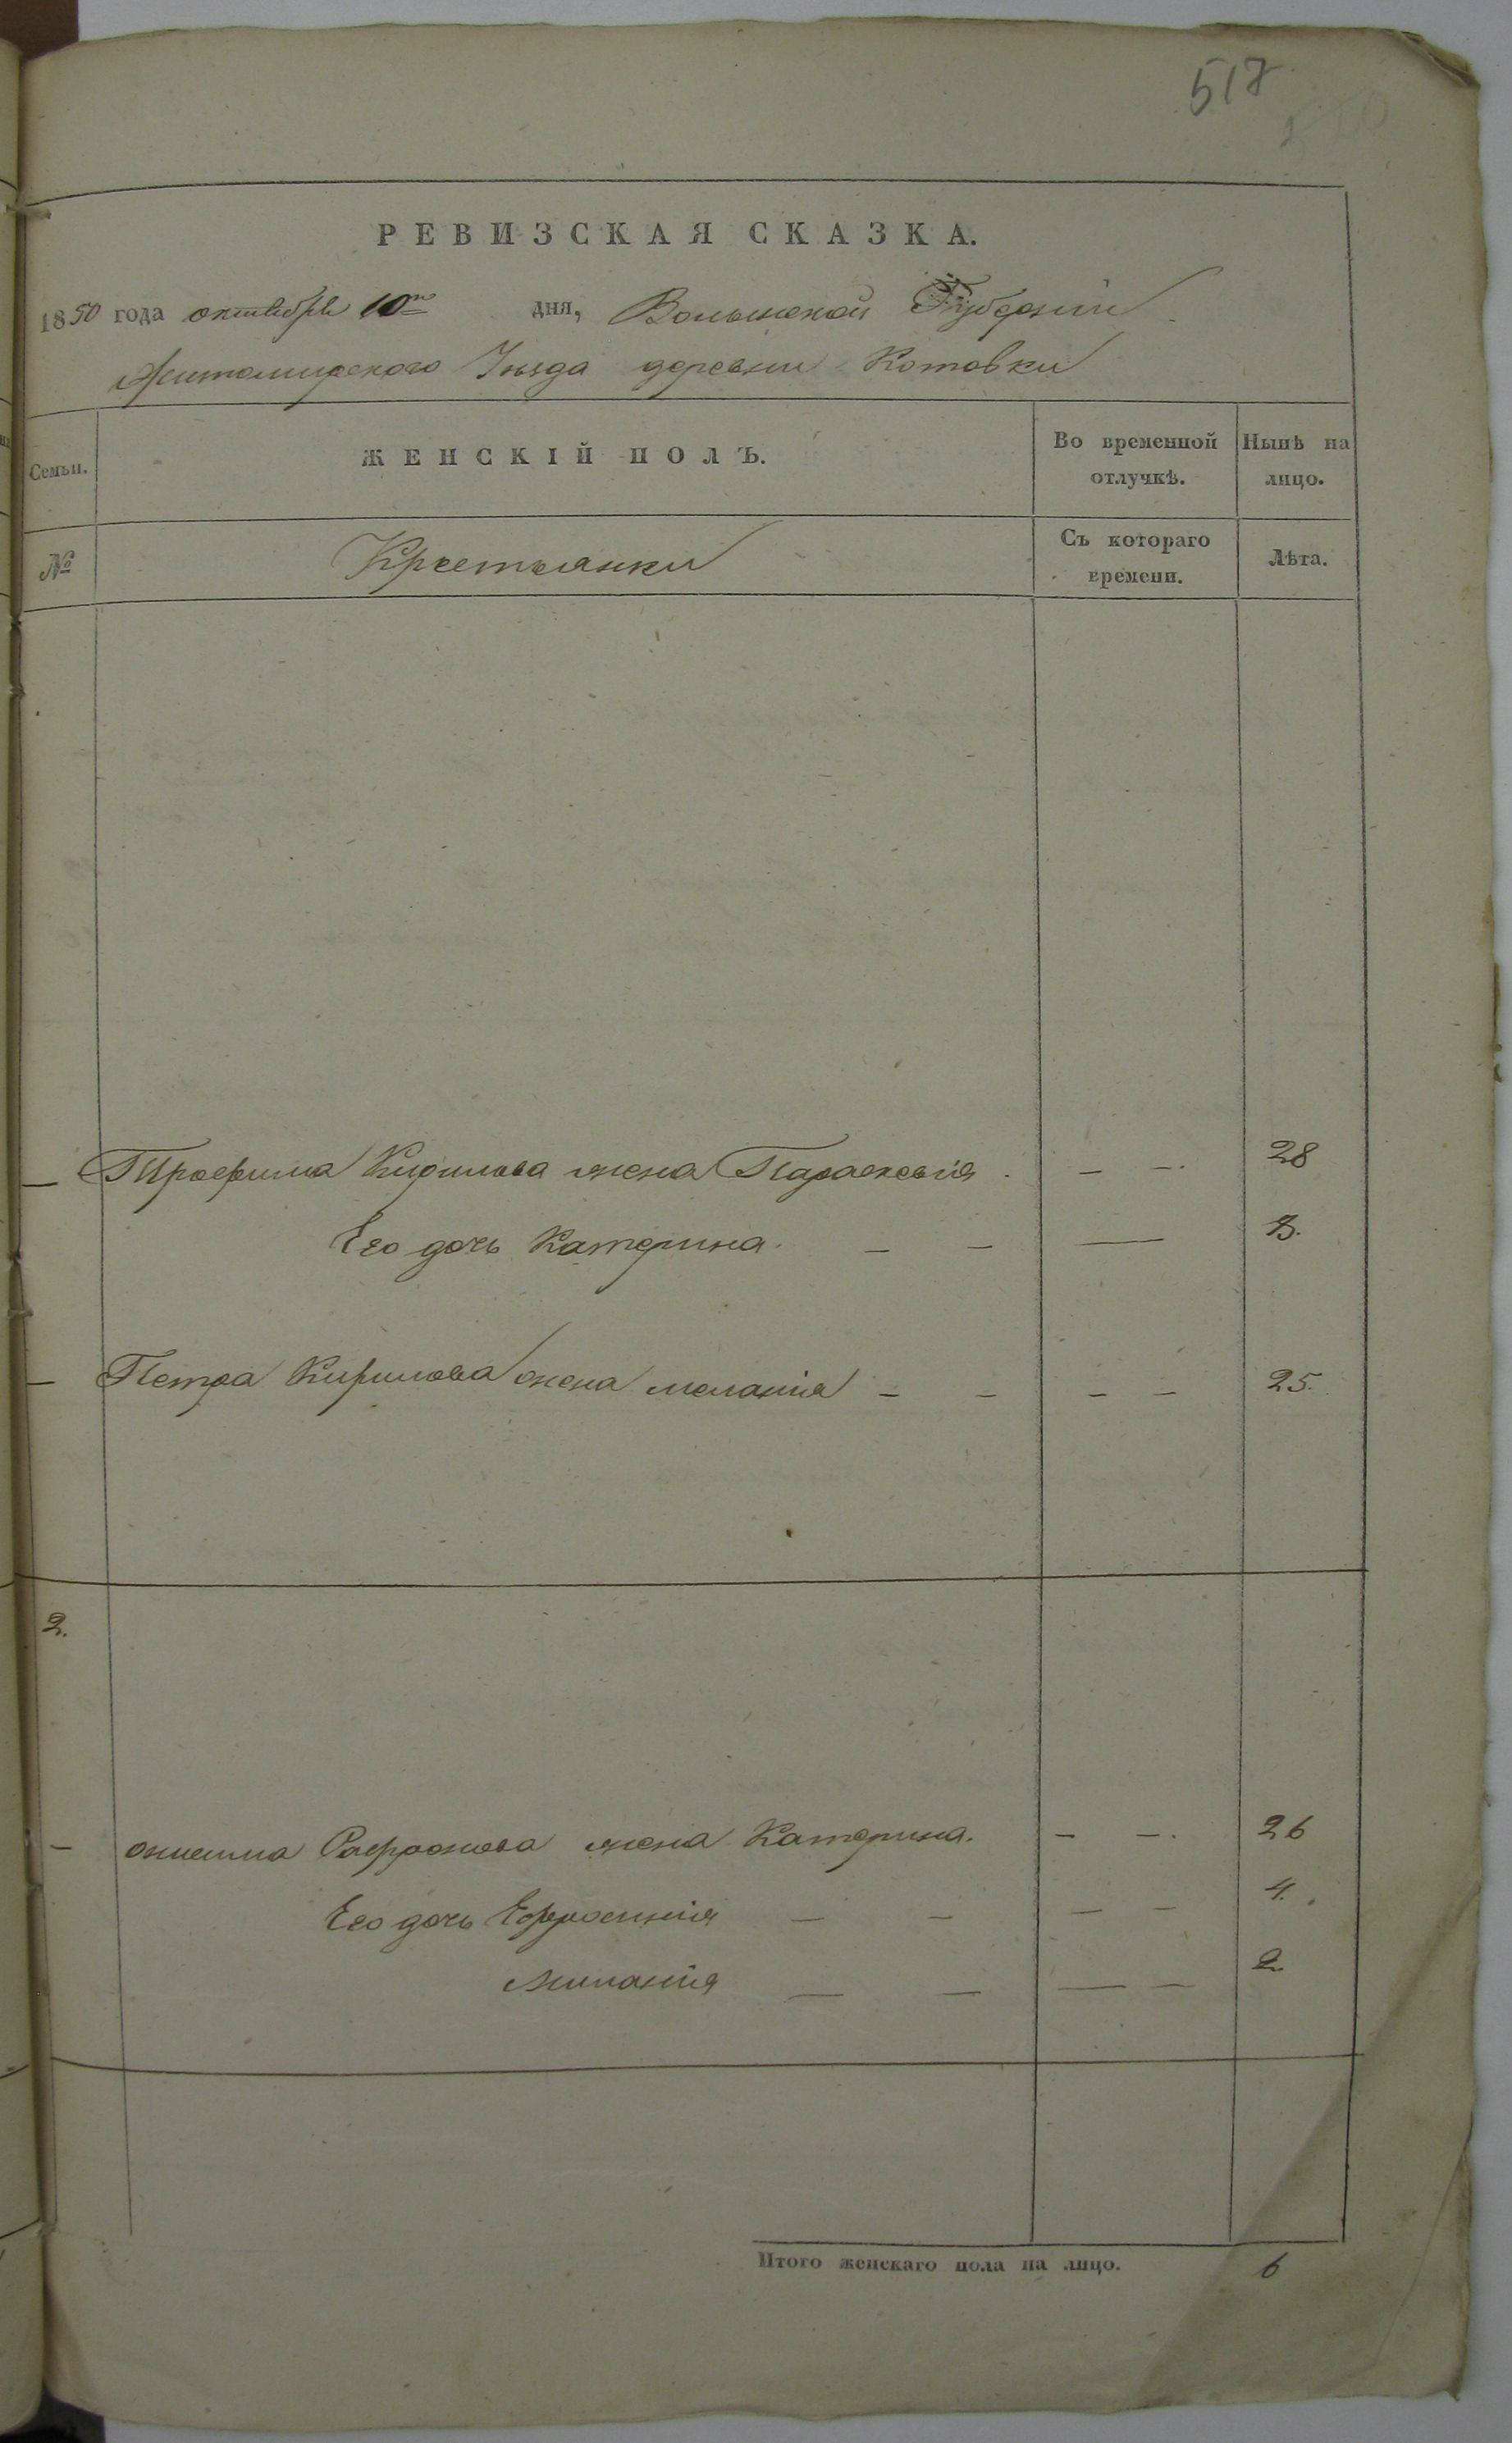 517
РЕВИЗСКАЯ СКАЗКА.
1850 года октября 10го дня, Волынской Губерніи
Житомирского Уѣзда деревни Котовки
Семьи. ЖЕНСКІЙ ПОЛЪ. Во временной отлучкѣ. Нынѣ на лицо.
№ Крестьянки Съ котораго времени. Лѣта.
— Трофима Кирилова жена Параскевія. — —. 28
Его дочь Катерина. — — — 3.
— Петра Кирилова жена меланія — — — — 25.
2.
— онисима жена Катерина. — —. 26
Его дочь Ефросинія — — — — 4.
Миланія — — — — 2.
Итого женскаго пола на лицо. 6